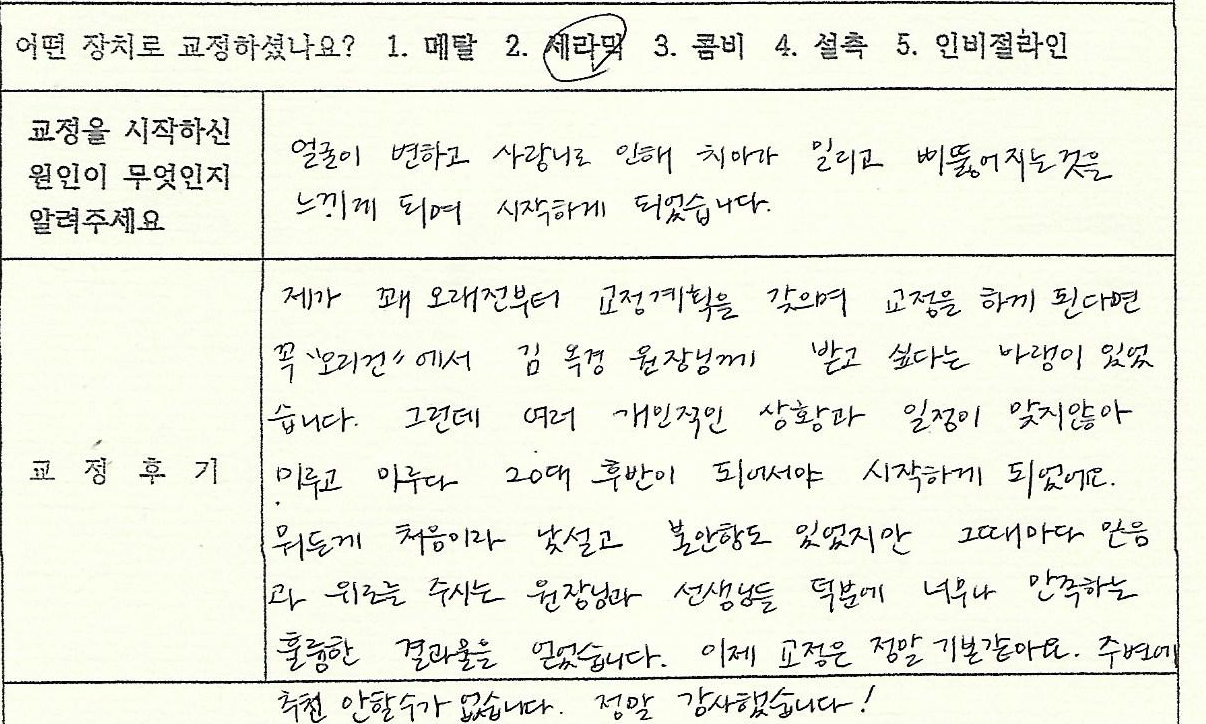 어떤 장치로 교정하셨나요? 1. 메탈 2. 세라믹 3. 콤비 4. 설측 5. 인비절라인
교정을 시작하신
원인이 무엇인지
알려주세요
얼굴이 변하고 사랑니로 인해 치아가 밀리고 삐뚫어지는것을
느끼게 되며 시작하게 되었습니다.
교 정 후 기
제가 꽤 오래전부터 교정계획을 갖으며 교정을 하게 된다면
꼭 "오리건" 에서 김 옥경 원장님께 받고 싶다는 바램이 있었
습니다. 그런데 여러 개인적인 상황과 일정이 맞지않아
미루고 미루다 20대 후반이 되어서야 시작하게 되었어요.
뭐든게 처음이라 낯설고 불안함도 있었지만 그때마다 믿음
과 위로를 주시는 원장님과 선생님들 덕분에 너무나 만족하는
훌륭한 결과물을 얻었습니다. 이제 교정은 정말 기본같아요. 주변에
추천 안할수가 없습니다. 정말 감사했습니다!